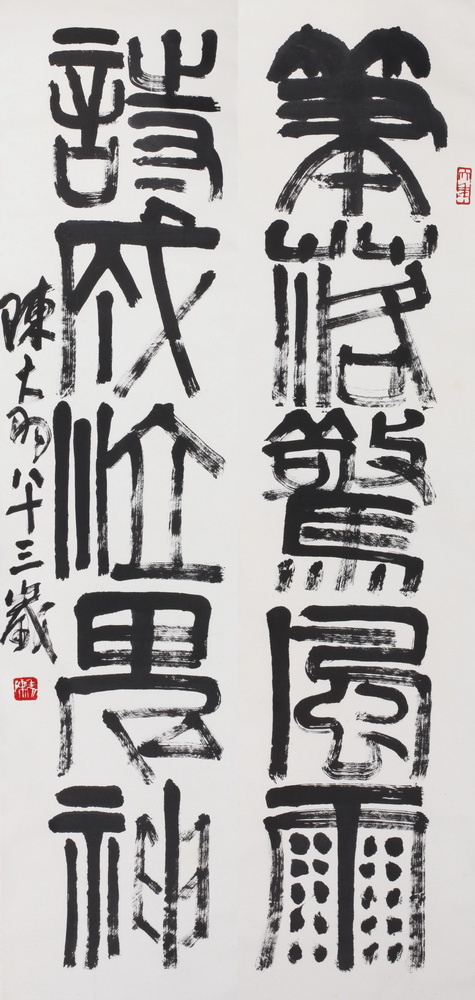 筆落驚風雨
詩成泣鬼神
陳大羽八十三歲